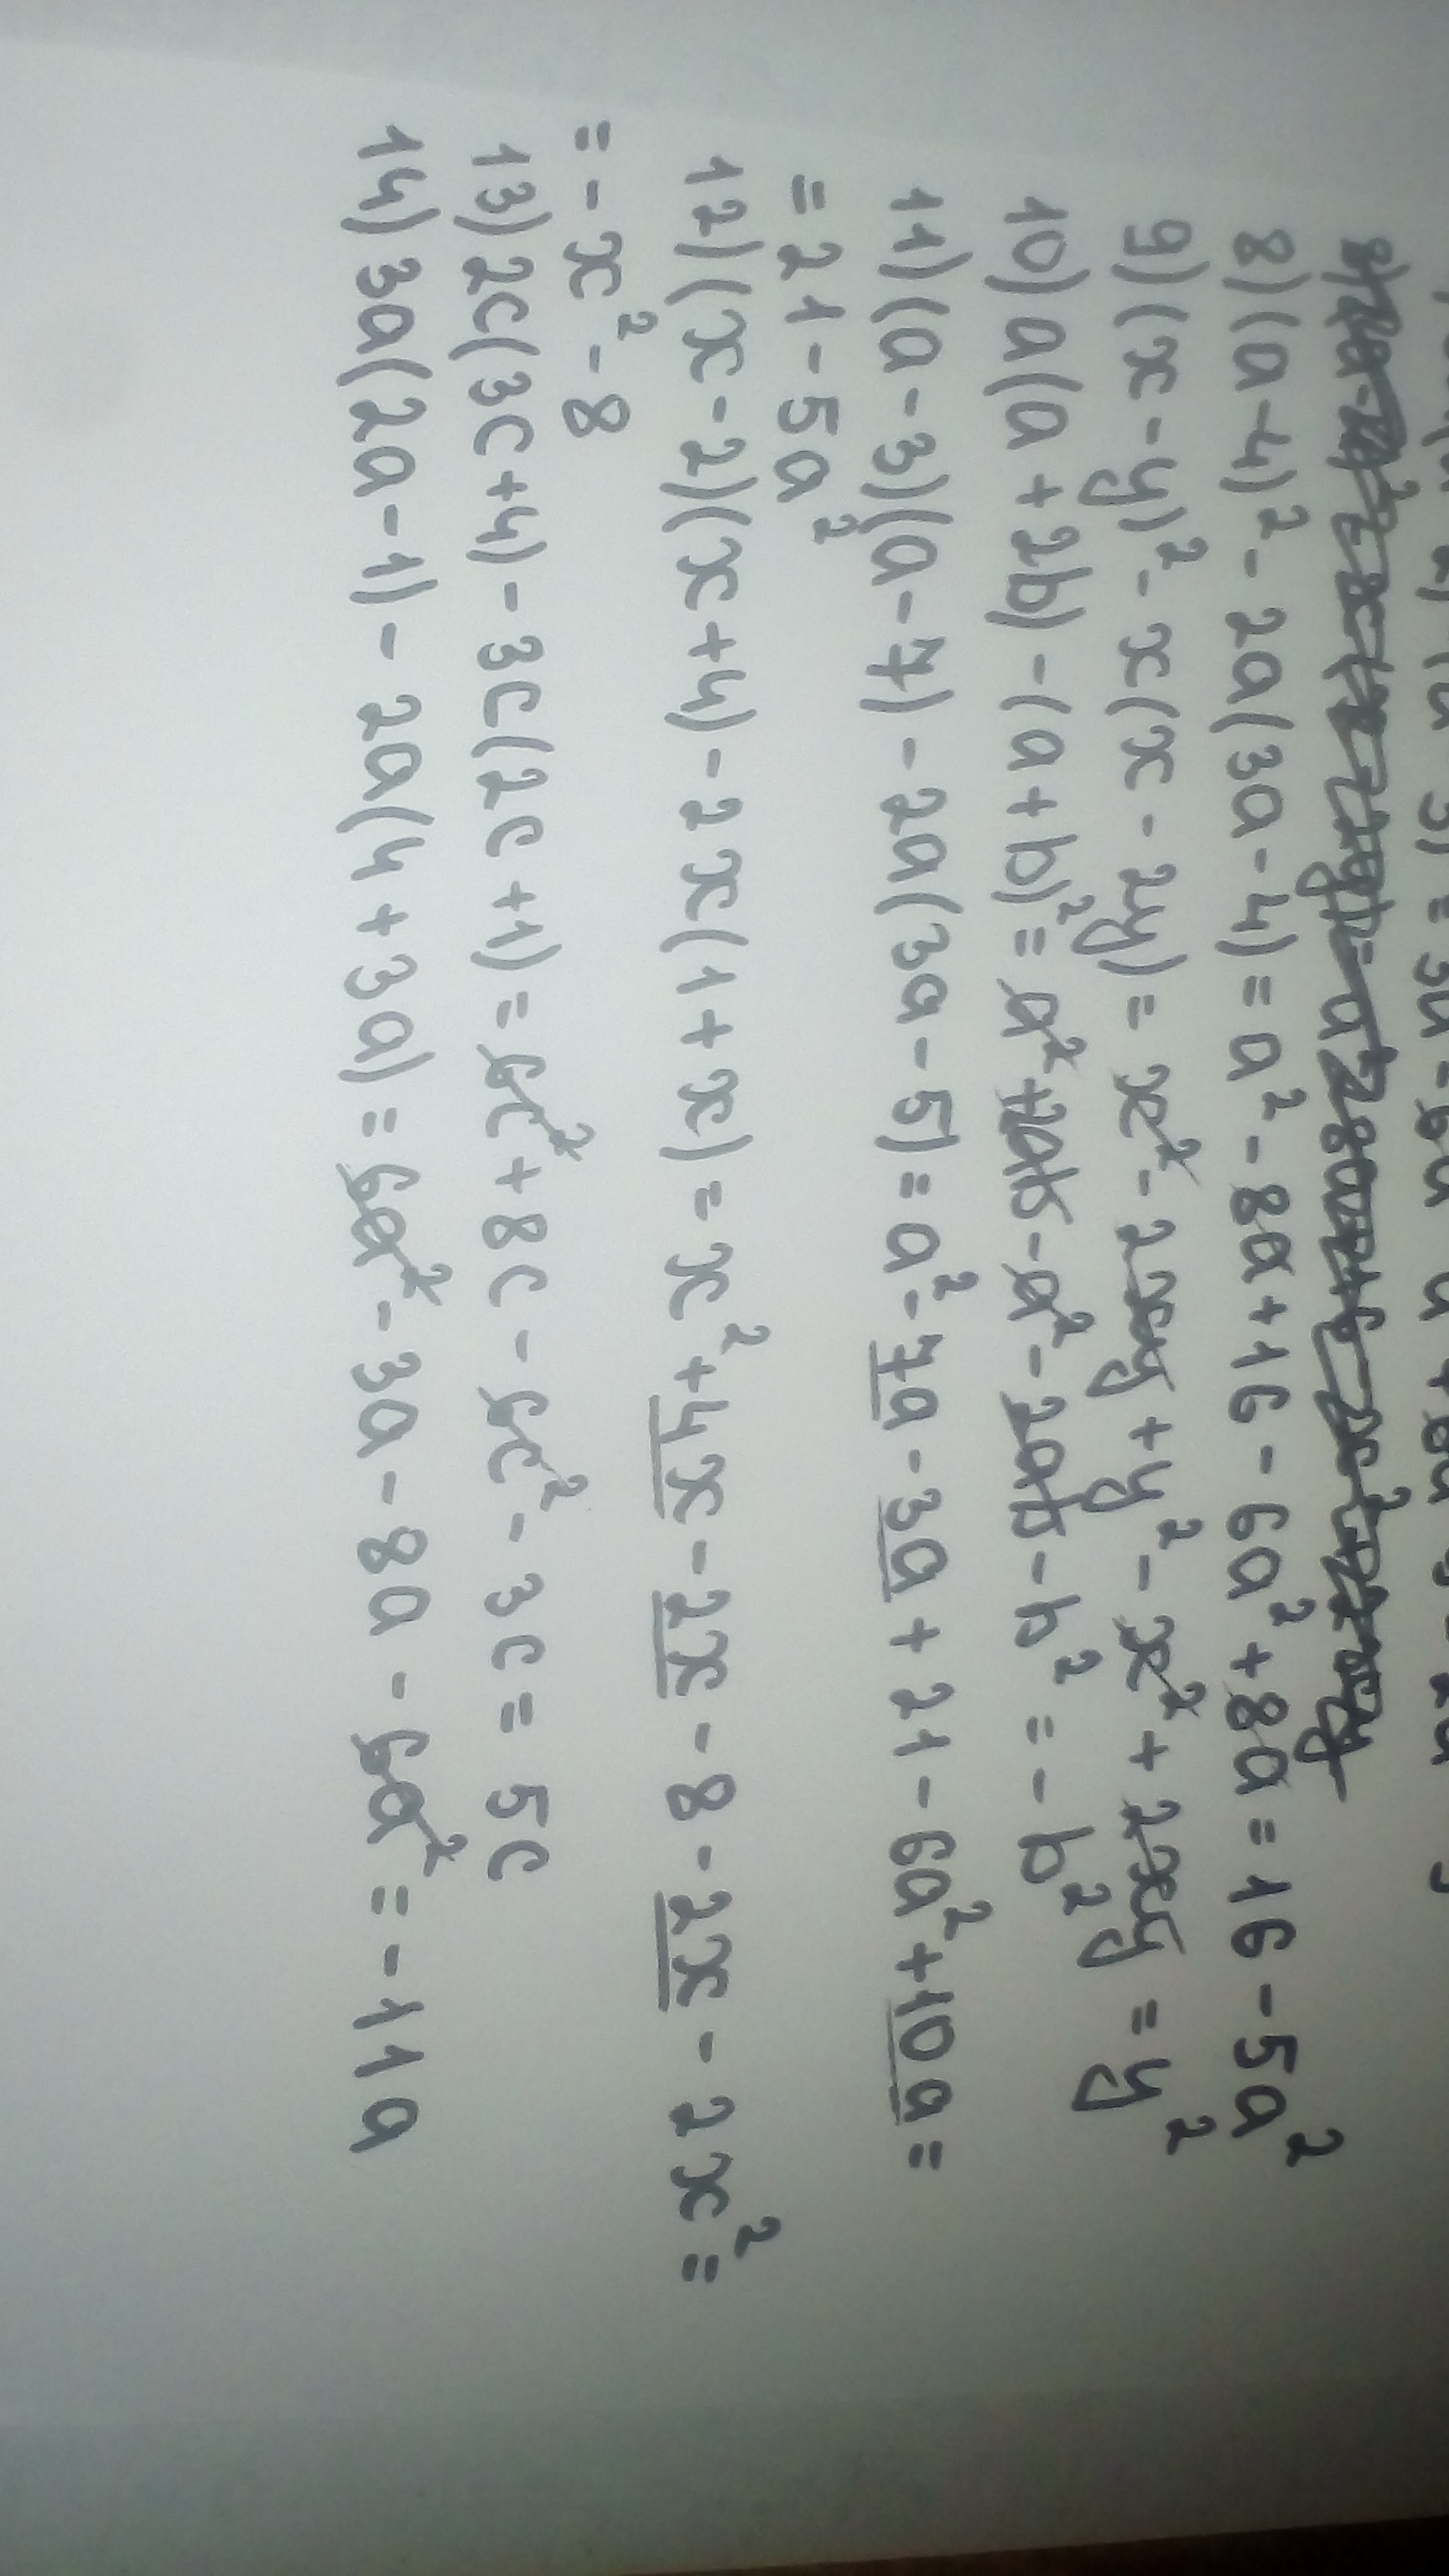 8) (a-4)² - 2a(3a-4) = a² - 8a + 16 - 6a² + 8a = 16 - 5a²
9) (x-y)² - x(x-2y) = x² - 2xy + y² - x² + 2xy = y²
10) a(a+2b) - (a+b)² = a² + 2ab - a² - 2ab - b² = -b²
11) (a-3)(a-7) - 2a(3a-5) = a² - 7a - 3a + 21 - 6a² + 10a =
= 21 - 5a²
12) (x-2)(x+4) - 2x(1+x) = x² + 4x - 2x - 8 - 2x - 2x² =
= -x² - 8
13) 2c(3c+4) - 3c(2c+1) = 6c² + 8c - 6c² - 3c = 5c
14) 3a(2a-1) - 2a(4+3a) = 6a² - 3a - 8a - 6a² = -11a